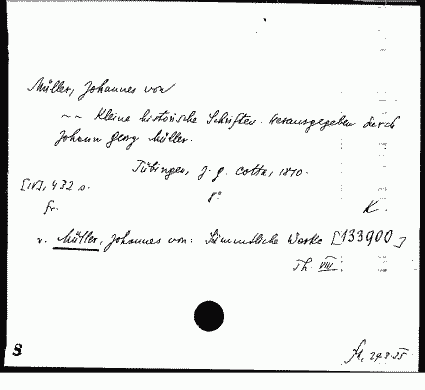 Müller, Johannes von
~~ Kleine historische Schriften. Herausgegeben durch
Johann Georg Müller.
Tübingen, J. G. Cotta, 1810.
[IV], 432 s.
8°
fr.
K.
v. Müller, Johannes von: Sämmtliche Werke [133900]
Th. VIII.
8